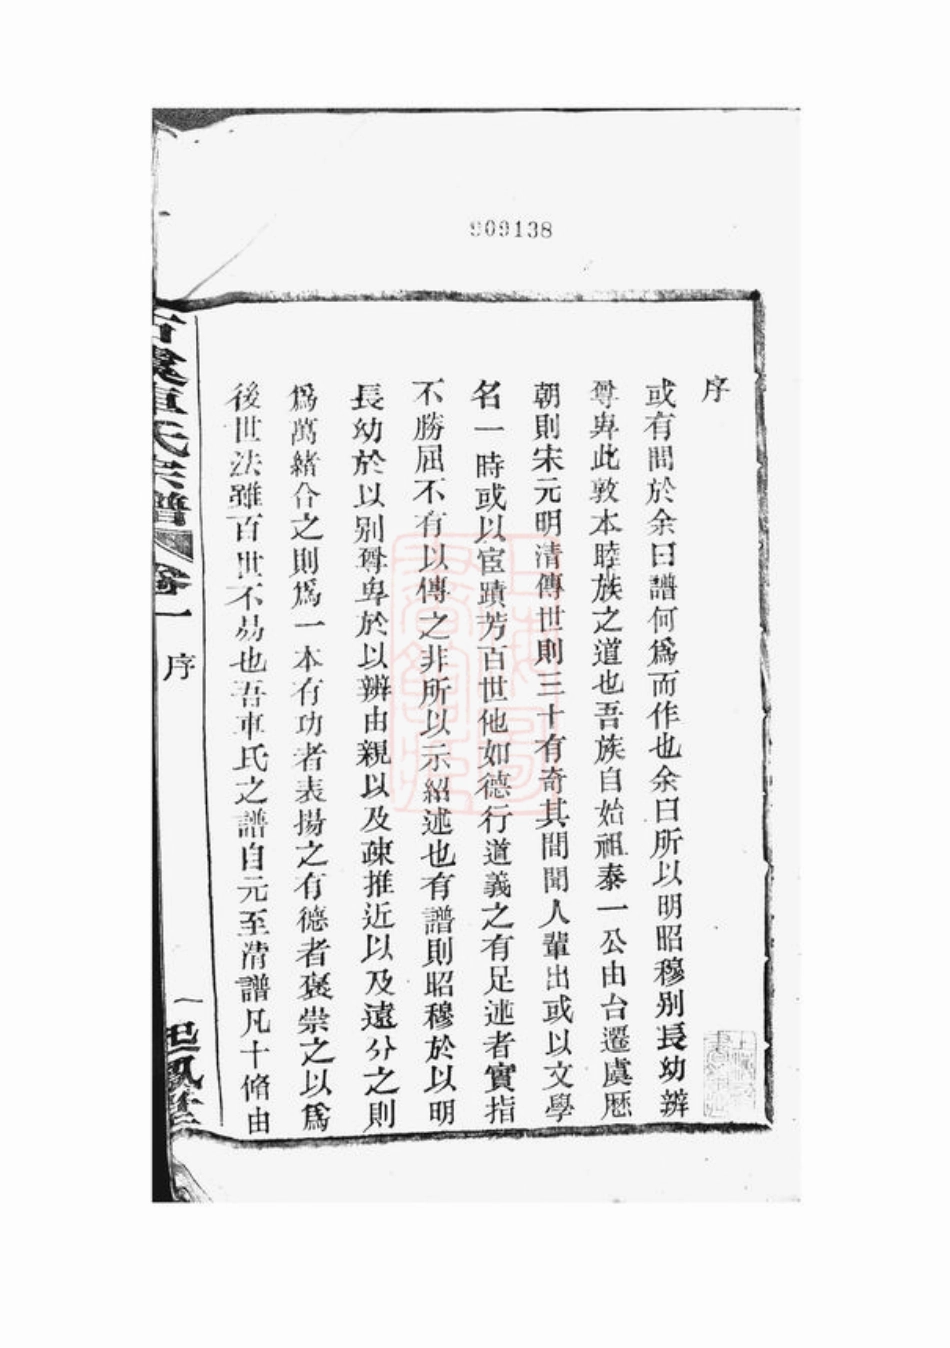 909138
序
或有問於余曰譜何爲而作也余曰所以明昭穆别長幼辨
尊卑此敦本睦族之道也吾族自始祖泰一公由台遷虞歷
朝則宋元明清傳世則三十有奇其間聞人輩出或以文學
名一時或以宦蹟芳百世他如德行道義之有足述者實指
不勝屈不有以傳之非所以示紹述也有譜則昭穆於以明
長幼於以别尊卑於以辨由親以及疎推近以及遠分之則
爲萬緒合之則爲一本有功者表揚之有德者褒崇之以爲
後世法雖百世不易也吾車氏之譜自元至清譜凡十脩由
古虞車氏宗譜 卷一 序 一